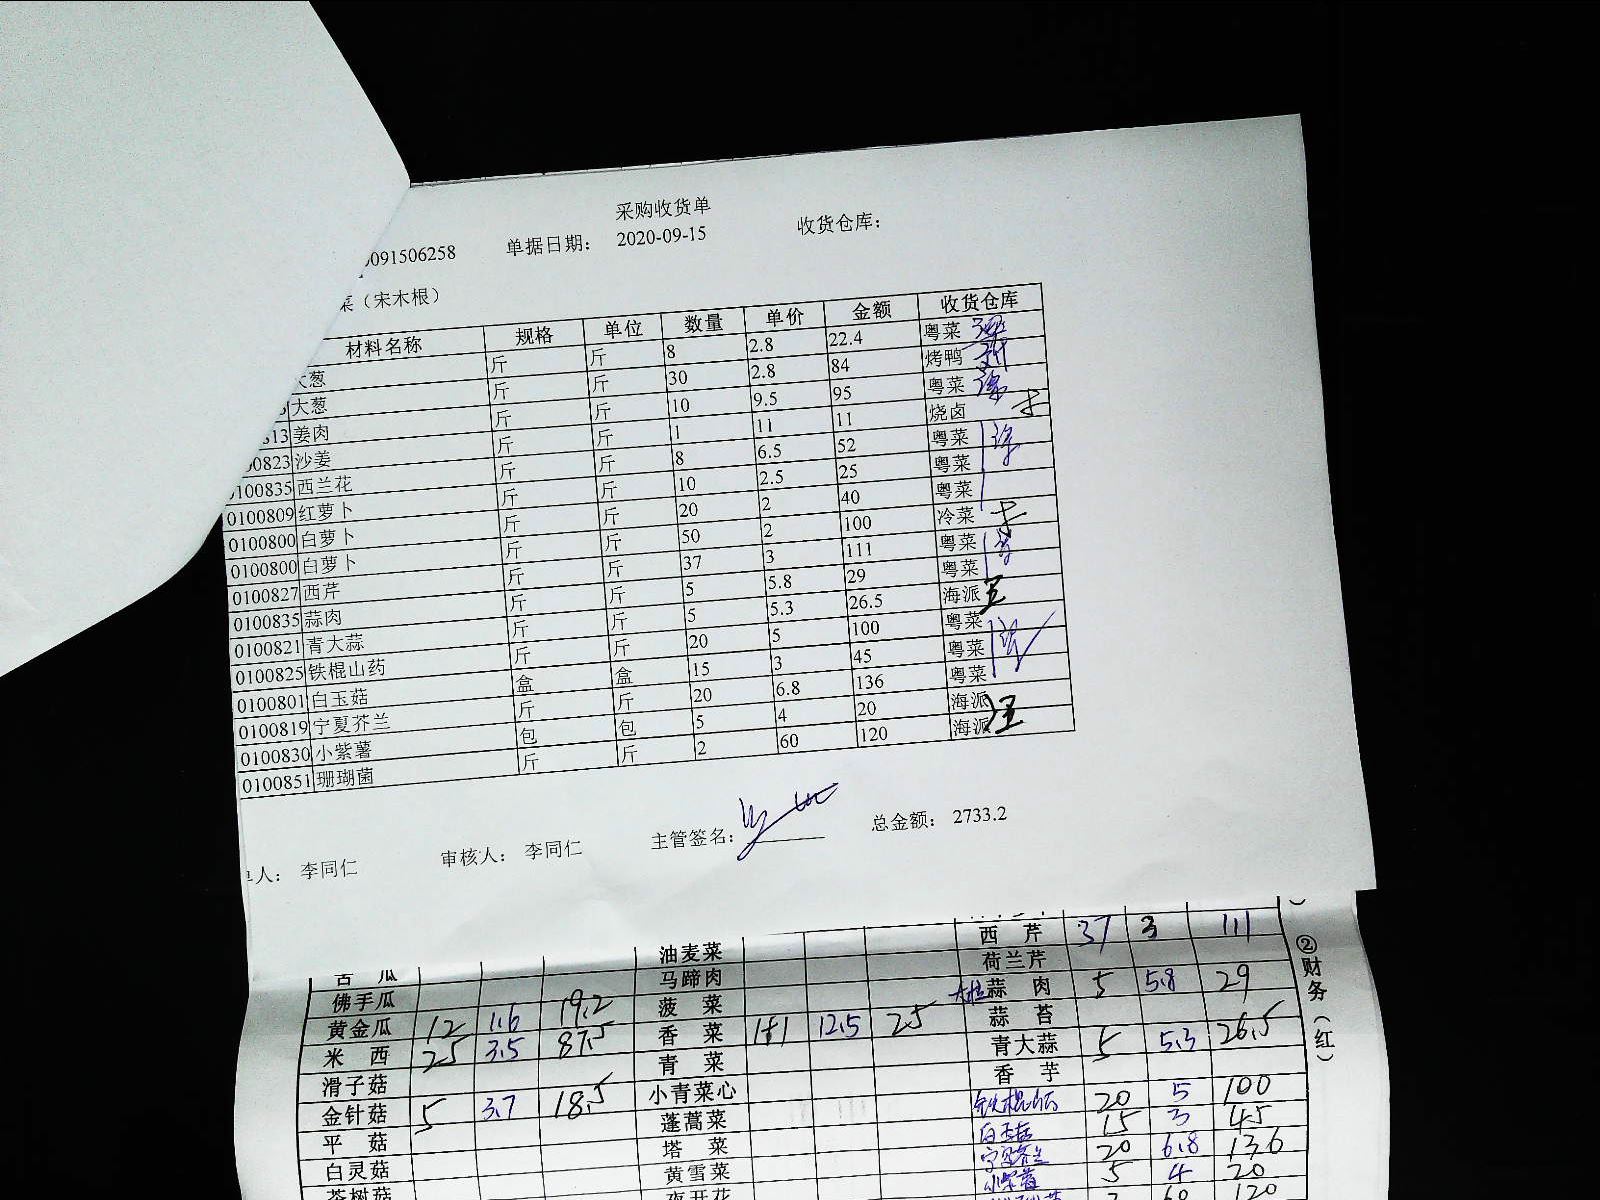 采购收货单
091506258 单据日期: 2020-09-15 收货仓库:
菜（宋木根）
材料名称 规格 单位 数量 单价 金额 收货仓库
大葱 斤 斤 8 2.8 22.4 粤菜
大葱 斤 斤 30 2.8 84 烤鸭
13 姜肉 斤 斤 10 9.5 95 粤菜
0823 沙姜 斤 斤 1 11 11 烧卤
0100835 西兰花 斤 斤 8 6.5 52 粤菜
0100809 红萝卜 斤 斤 10 2.5 25 粤菜
0100800 白萝卜 斤 斤 20 2 40 粤菜
0100800 白萝卜 斤 斤 50 2 100 冷菜
0100827 西芹 斤 斤 37 3 111 粤菜
0100835 蒜肉 斤 斤 5 5.8 29 粤菜
0100821 青大蒜 斤 斤 5 5.3 26.5 海派 王
0100825 铁棍山药 斤 斤 20 5 100 粤菜
0100801 白玉菇 盒 盒 15 3 45 粤菜
0100819 宁夏芥兰 斤 斤 20 6.8 136 粤菜
0100830 小紫薯 包 包 5 4 20 海派
0100851 珊瑚菌 斤 斤 2 60 120 海派 王
单人: 李同仁 审核人: 李同仁 主管签名: 总金额: 2733.2
油麦菜 西芹 37 3 111
苦瓜 马蹄肉 荷兰芹
佛手瓜 19.2 菠菜 蒜肉 5 5.8 29
黄金瓜 12 1.6 香菜 1+1 12.5 25 蒜苔
米西 25 3.5 87.5 青菜 青大蒜 5 5.3 26.5
滑子菇 小青菜心 香芋
金针菇 5 3.7 18.5 蓬蒿菜 铁棍山药 20 5 100
平菇 塔菜 白玉菇 15 3 45
白灵菇 黄雪菜 宁夏芥兰 20 6.8 136
茶树菇 夜开花 小紫薯 5 4 20
2 60 120
②财务（红）